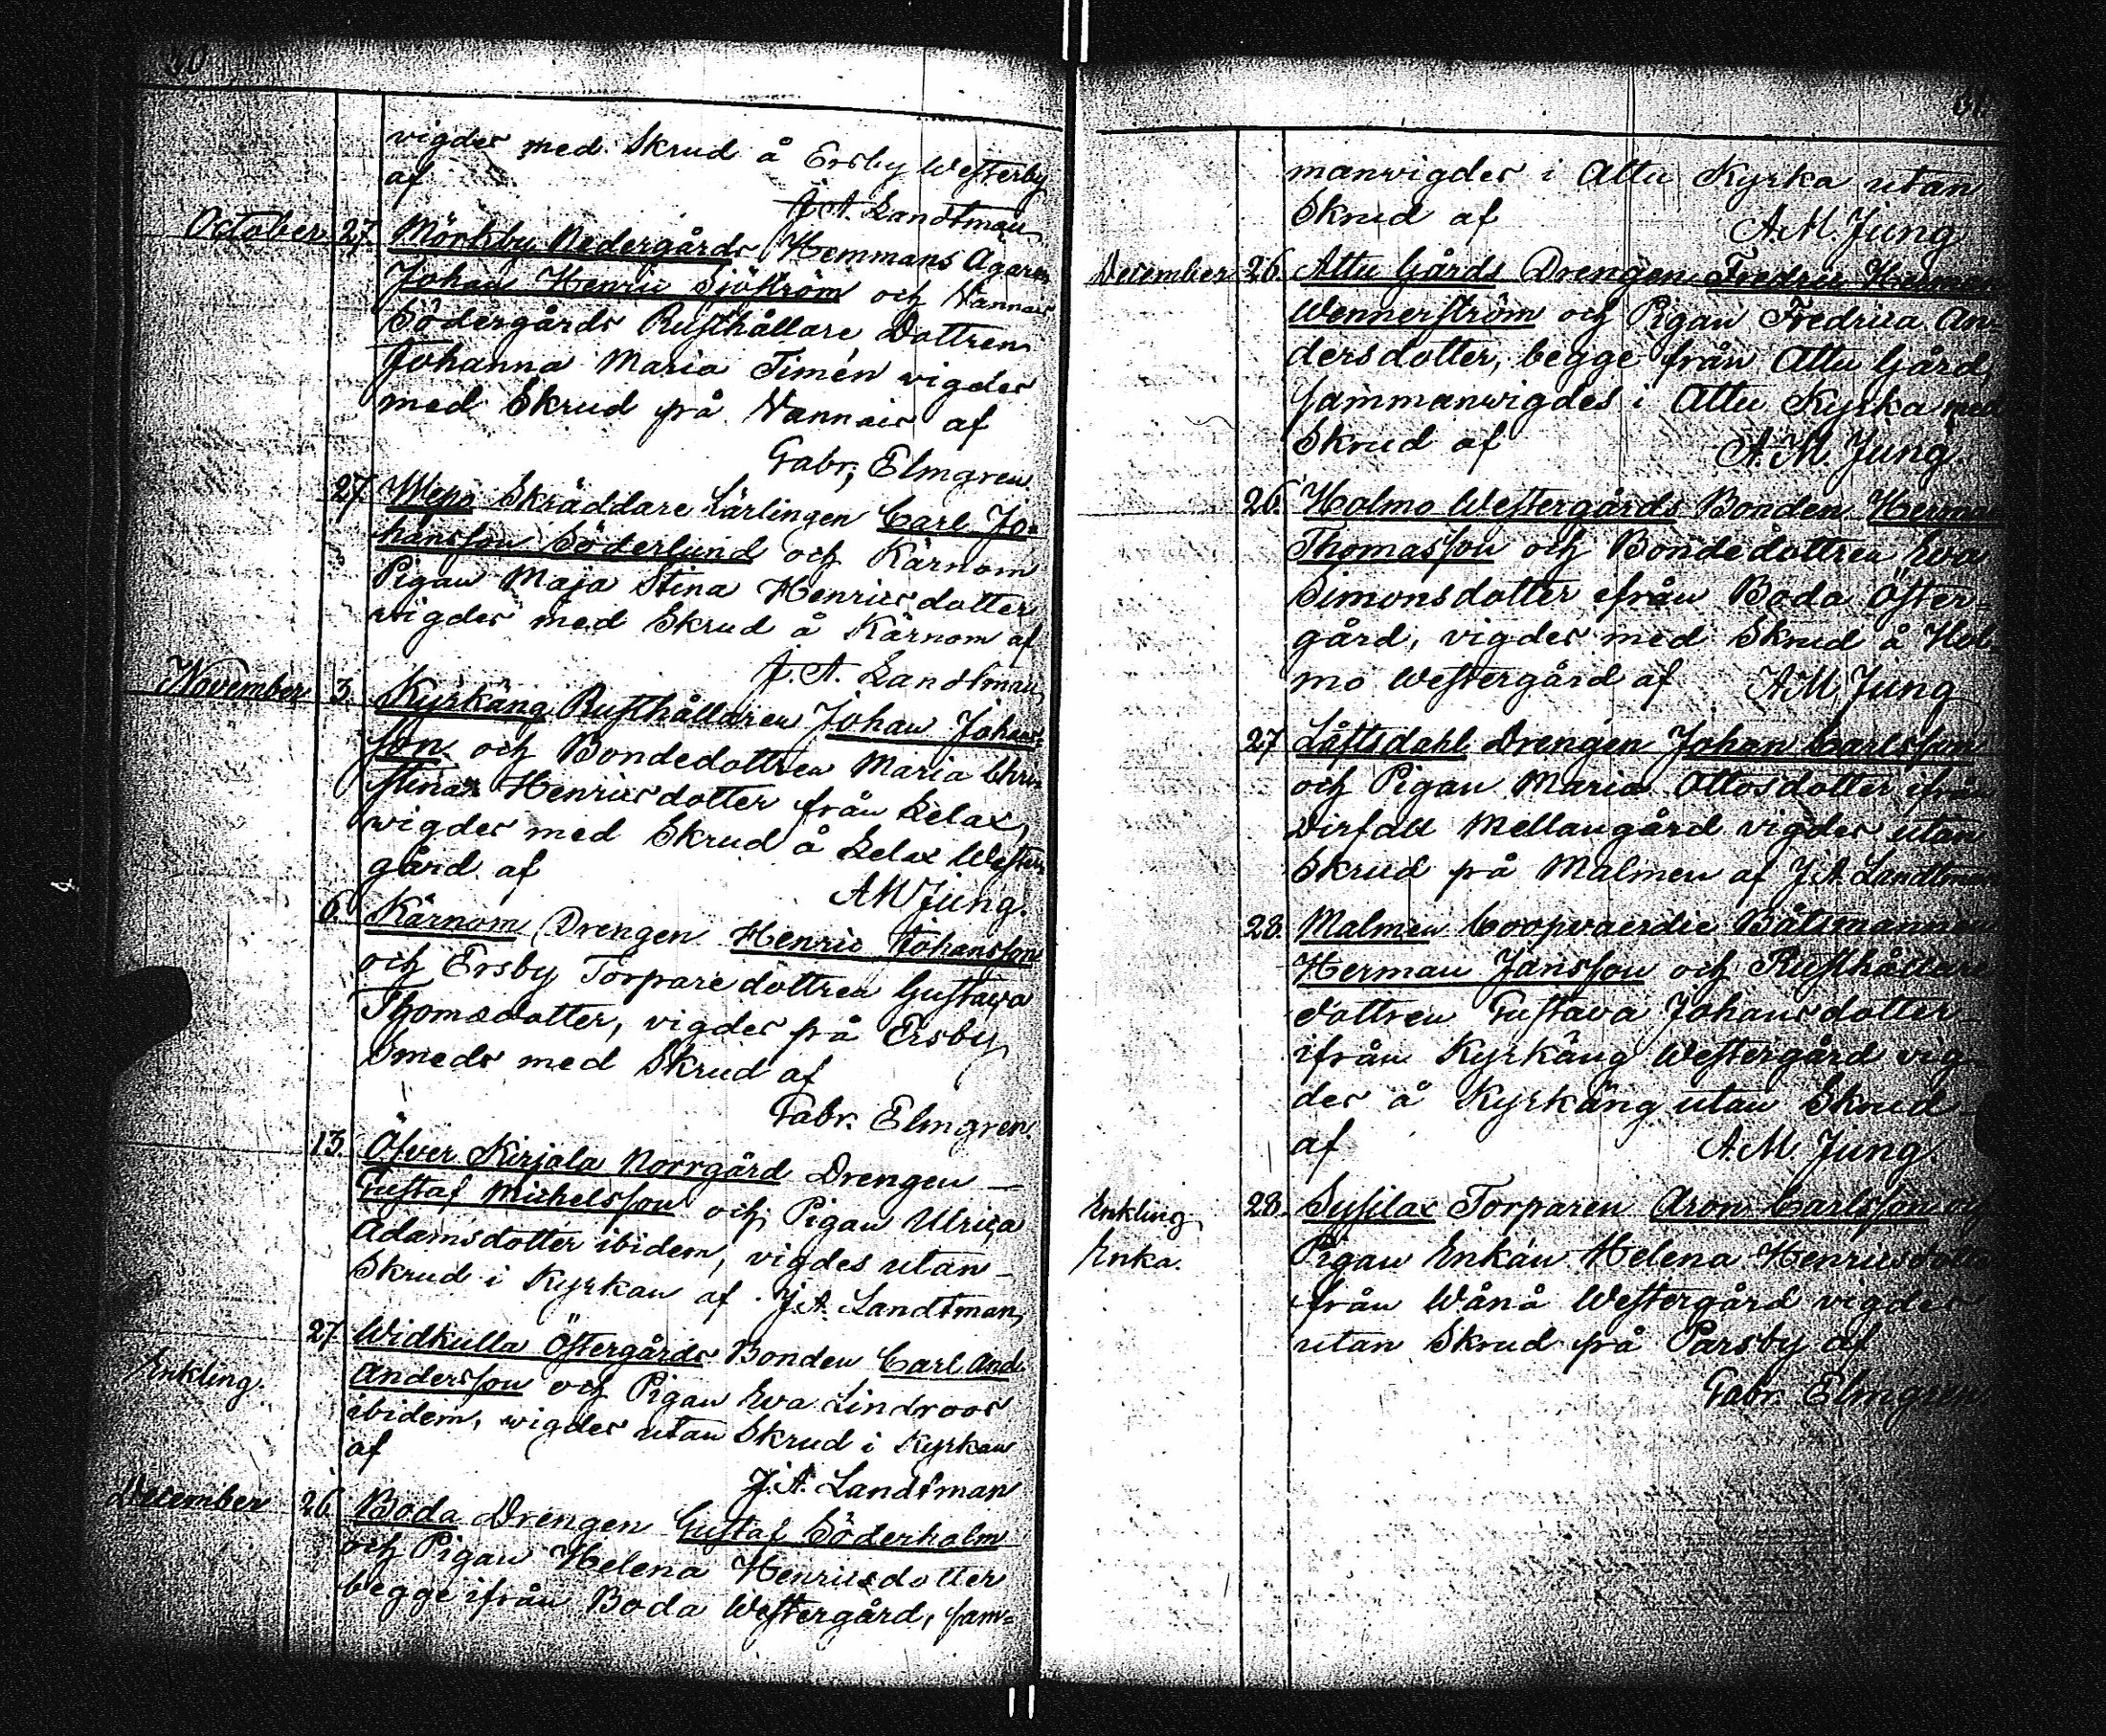 vigdes med Skrud å Ersby Westerby
af
J. A. Landtman
October 27. Mörkby Nedergårds Hemmans Ägaren
Johan Henric Sjöström och Vannais
Södergårds Rusthållare Dottren
Johanna Maria Timén vigdes
med Skrud på Vannais af
Gabr; Elmgren
27. Wepo Skräddare Lärlingen Carl Jo=
hansson Söderlund och Kärnom
Pigan Maja Stina Henricsdotter
vigdes med Skrud å Kärnom af
J. A. Landtman
November 3. Kyrkäng Rusthållaren Johan Johans=
son och Bondedottren Maria Chri=
stina Henricsdotter från Lelax,
vigdes med Skrud å Lelax Wester
gård af
AM Jung.
6. Kärnom Drengen Henric Johansson
och Ersby Torparedottren Gustava
Thomsdotter, vigdes på Ersby
Smeds med Skrud af
Gabr. Elmgren.
13. Öfver Kirjala Norrgård Drengen —
Gustaf Michelsson och Pigan Ulrica
Adamsdotter ibidem, vigdes utan —
Skrud i Kyrkan af J. A. Landtman
27. Widkulla Östergårds Bonden Carl And.
Enkling. Andersson och Pigan Eva Lindroos
ibidem, vigdes utan Skrud i Kyrkan
af
J. A. Landtman
December 26. Boda Drengen Gustaf Söderholm
och Pigan Helena Henricsdotter
begge ifrån Boda Westergård, sam=
manvigdes i Attu Kyrka utan
Skrud af
A. M. Jung
December 26. Attu Gårds Drengen Fredric Herman
Wennerström och Pigan Fredrica An=
dersdotter, begge från Attu Gård,
sammanvigdes i Attu Kyrka med
Skrud af
A. M. Jung
26. Holmo Westergårds Bonden Herman
Thomasson och Bondedottren Eva
Simonsdotter ifrån Boda Öster=
gård, vigdes med Skrud å Hol=
mo Westergård af AM Jung
27 Låftsdahl Drengen Johan Carlsson
och Pigan Maria Ottosdotter ifrån
Dirfalt Mellangård vigdes utan
Skrud på Malmen af J. A. Landtman
28. Malmen Coopvaerdie Båtsmannen
Herman Jansson och Rusthållare
dottren Gustava Johansdotter
ifrån Kyrkäng Westergård vig=
des å Kyrkäng utan Skrud
af
A. M. Jung.
Enkling 28. Sysilax Torparen Aron Carlsson och
Enka. Pigan Enkan Helena Henricsdotter
från Wånå Westergård vigdes
utan Skrud på Parsby af
Gabr. Elmgren